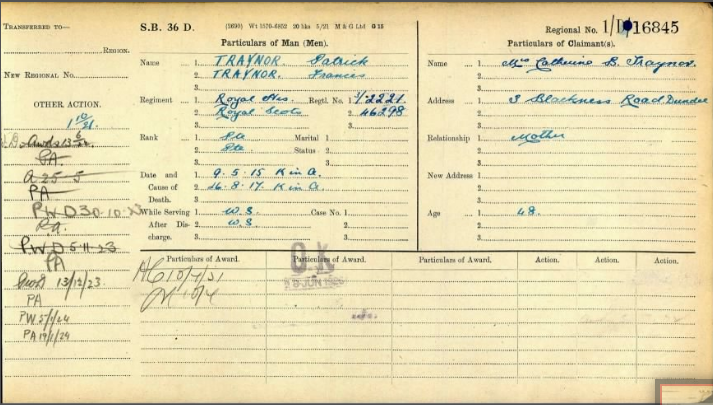 TRANSFERRED TO—
REGION.
NEW REGIONAL No.
OTHER ACTION.
PA
A 25-5
PA
PWD 30.10.23
P.A.
PWD 5.11.23
PA
13/12/23
PA
PW
PA
S.B. 36 D.
M & G Ltd
Regional No. 1/D 16845
Particulars of Man (Men).
Name 1. TRAYNOR. Patrick
2. TRAYNOR. Frances
3.
Regiment 1. Royal Hrs. Regtl. No. 1 3/2221
2. Royal Scots 2. 46298
3. 3.
Rank 1. Pte Marital 1
2. Pte Status 2
3. 3.
Date and Cause of Death. 1. 9.5.15 K in A.
2. 16.8.17. K in A.
3.
While Serving 1. W.S. Case No. 1
After Discharge. 2. W.S. 2
3. 3
Particulars of Claimant(s).
Name 1. Mrs Catherine B. Traynor.
2.
3.
Address 1. 3 Blackness Road Dundee
2.
3.
Relationship 1. Mother
2.
3.
New Address 1.
2.
3.
Age 1. 48.
2.
3.
Particulars of Award. Particulars of Award. Particulars of Award. Action. Action. Action.
O.K
JUN